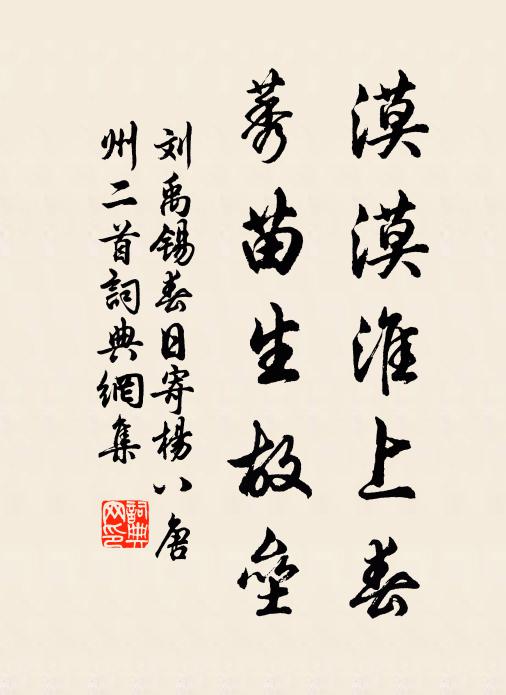 漠漠淮上春
莠苗生故壘
刘禹锡春日寄楊八唐
州二首詞典網集
詞典网印